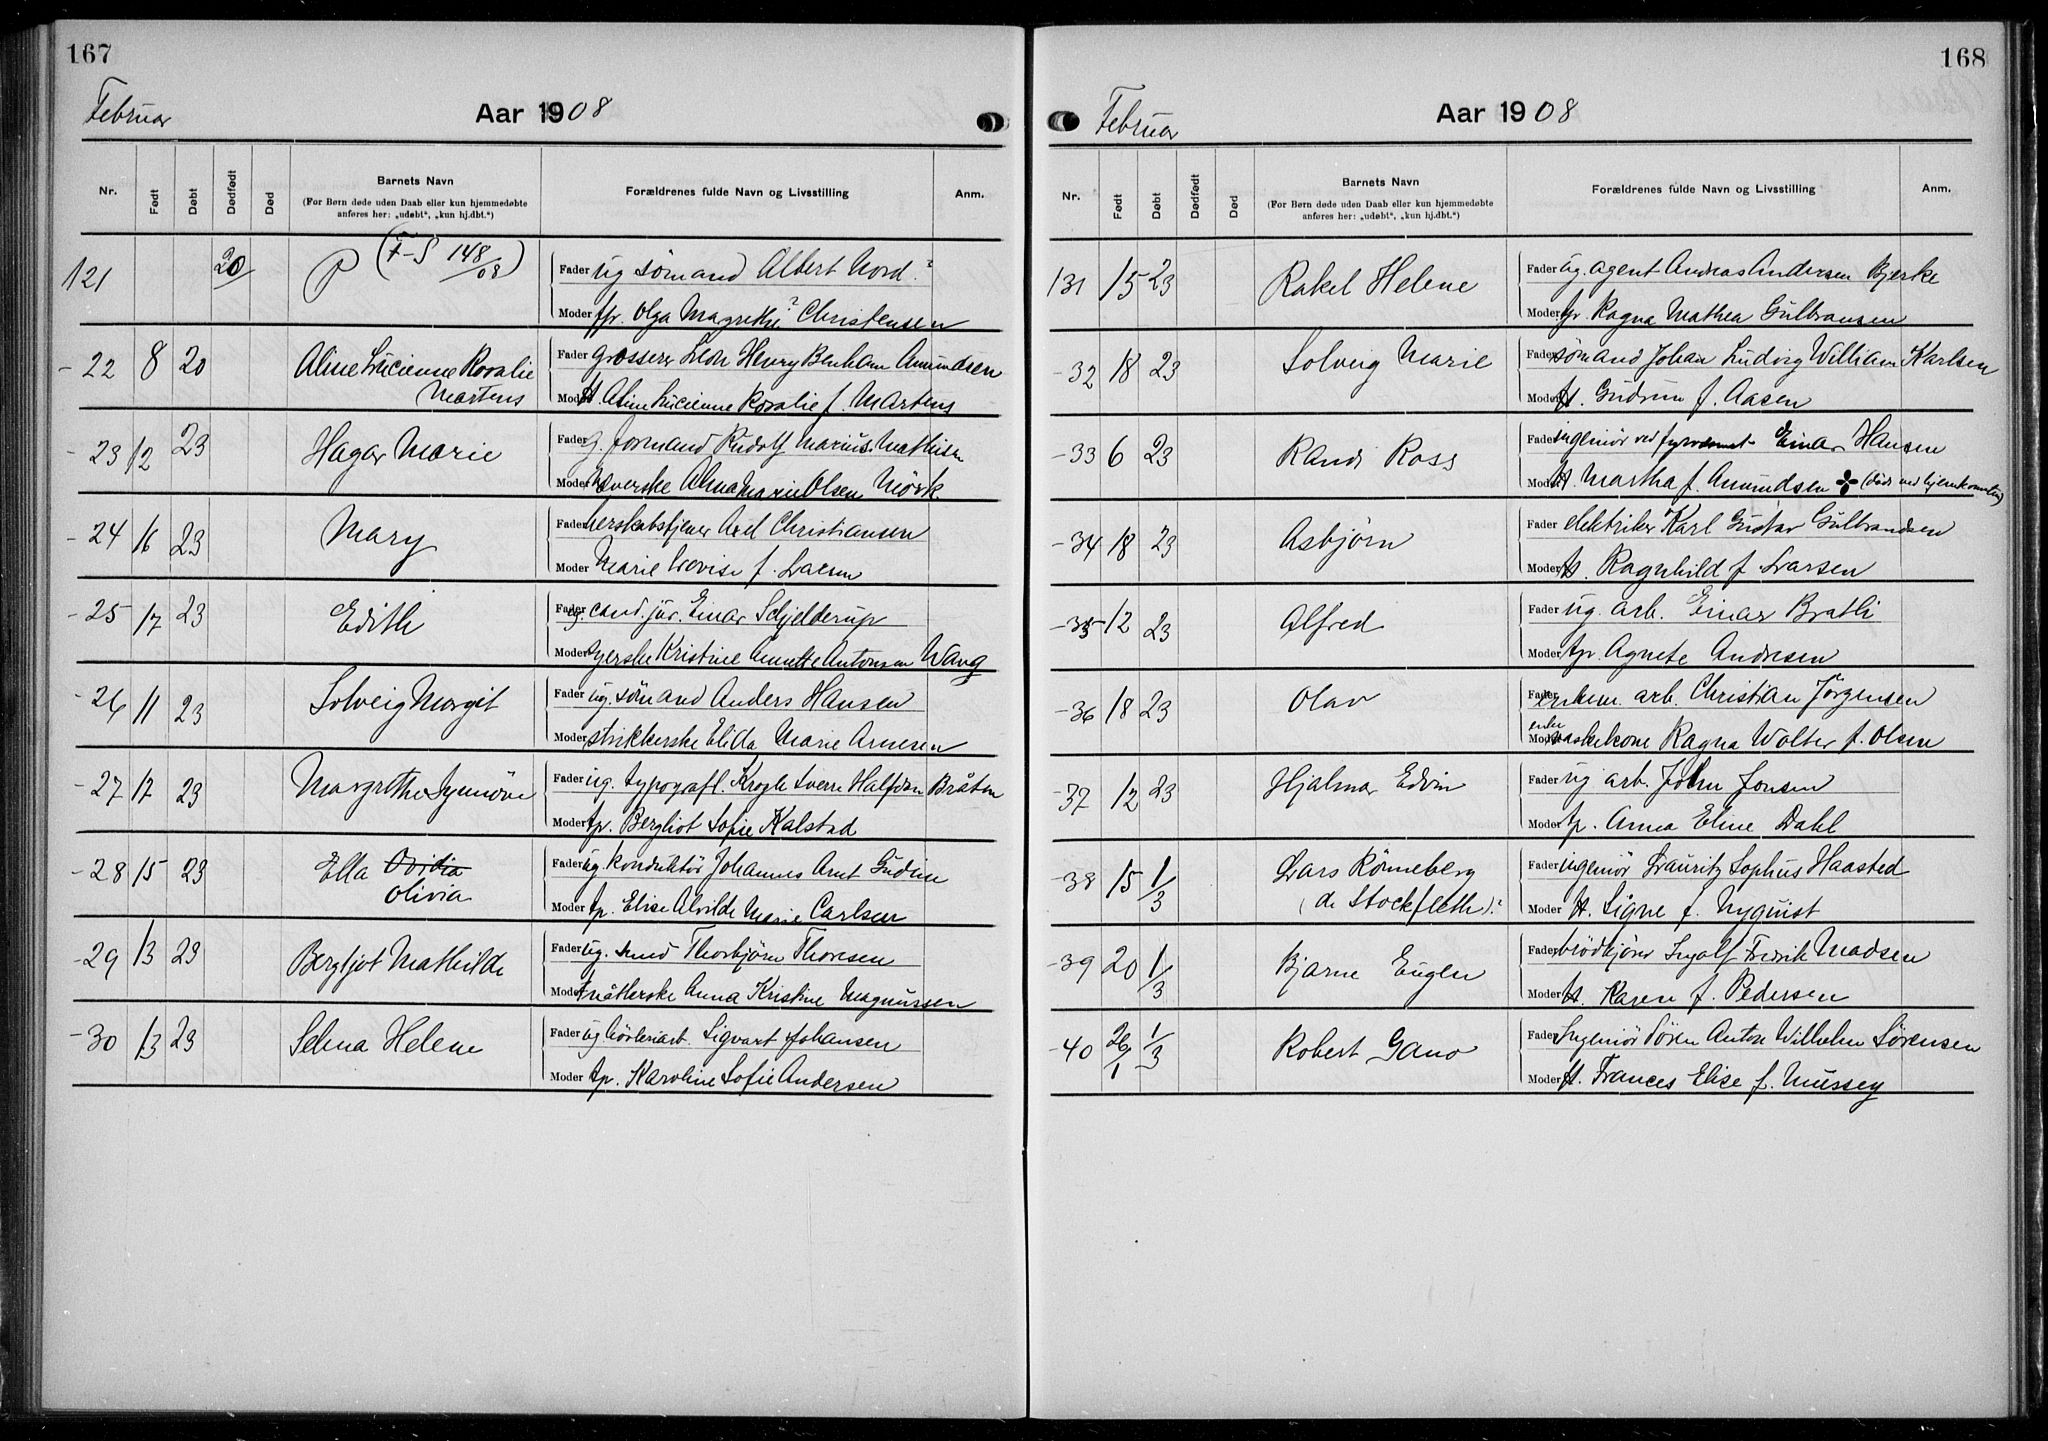 167
Februar
Aar 1908
Nr.
Født
Døbt
Dødfødt
Død
Barnets Navn
(For Børn døde uden Daab eller kun hjemmedøbte
anføres her: „udøbt“, „kun hj.dbt.“)
Forældrenes fulde Navn og Livsstilling
Anm.
121 20 P (F-S 148/08)
Fader ug sømand Albert Nord ?
Moder tp. Olga Magrethe ? Christensen
-22 8 20 Aline Lucienne Rosalie
Martens
Fader grosserer Leon Henry Amundsen
Moder H. Aline Lucienne Rosalie f. Martens
-23 12 23 Hagar Marie
Fader g. formand Rudolf Marius Mathisen
Moder væverske Alma Marie Olsen Mørk.
-24 16 23 Mary
Fader herskabstjener Axel Christiansen
Moder Marie Lovise f. Larsen
-25 17 23 Edith
Fader ug. cand. jur. Einar Schjelderup
Moder syerske Kristine Annette Antonsen Wang
-26 11 23 Solveig Margit
Fader ug. sømand Anders Hansen
Moder strikkerske Elida Marie Arnesen
-27 17 23 Margrethe Synnöve
Fader ug. typograf Krogh Sverre Halfdan Bråten
Moder tp. Bergliot Sofie Kalstad
-28 15 23 Ella Ovidia
Olivia
Fader ug. konduktör Johannes Arnt
Moder tp. Elise Alvilde Marie Carlsen
-29 13 23 Bergljot Mathilde
Fader ug. smed Thorbjørn Thoresen
Moder Anna Kristine Magnussen
-30 13 23 Selma Helene
Fader ug Sigvart Johansen
Moder tp. Karoline Sofie Andersen
168
Februar
Aar 1908
Nr.
Født
Døbt
Dødfødt
Død
Barnets Navn
(For Børn døde uden Daab eller kun hjemmedøbte
anføres her: „udøbt“, „kun hj.dbt.“)
Forældrenes fulde Navn og Livsstilling
Anm.
131 15 23 Rakel Helene
Fader ug. agent Andreas Andersen Bjerke
Moder tp. Ragna Mathea Gulbransen
-32 18 23 Solveig Marie
Fader sømand Johan Ludvig William Karlsen
Moder H. Gudrun f. Aasen
-33 6 23 Randi Ross
Fader ingeniör ved fyrvæsenet Einar Hansen
Moder H. Martha f. Amundsen (död ved hjemkomsten)
-34 18 23 Asbjörn
Fader elektriker Karl Gustav Gulbrandsen
Moder H. Ragnhild f. Larsen
-35 12 23 Alfred
Fader ug. arb. Einar Bratli
Moder tp. Agnete Andresen
-36 18 23 Olav
Fader enkem. arb. Christian Jörgensen
Moder enke vaskekone Ragna Wolter f. Olsen
-37 12 23 Hjalmar Edvin
Fader ug arb. John Jonsen
Moder tp. Anna Eline Dahl
-38 15 1/3 Lars Rönneberg
(de Stockfleth)?
Fader ingeniör Lauritz Sophus Haasted
Moder H. Signe f. Nyquist
-39 20 1/3 Bjarne Eugen
Fader brödkjörer Ingolf Fredrik Madsen
Moder H. Karen f. Pedersen
-40 26/1 1/3 Robert Gano
Fader Ingeniör Sören Anton Wilhelm Sörensen
Moder H. Frances Elise f. Mussey